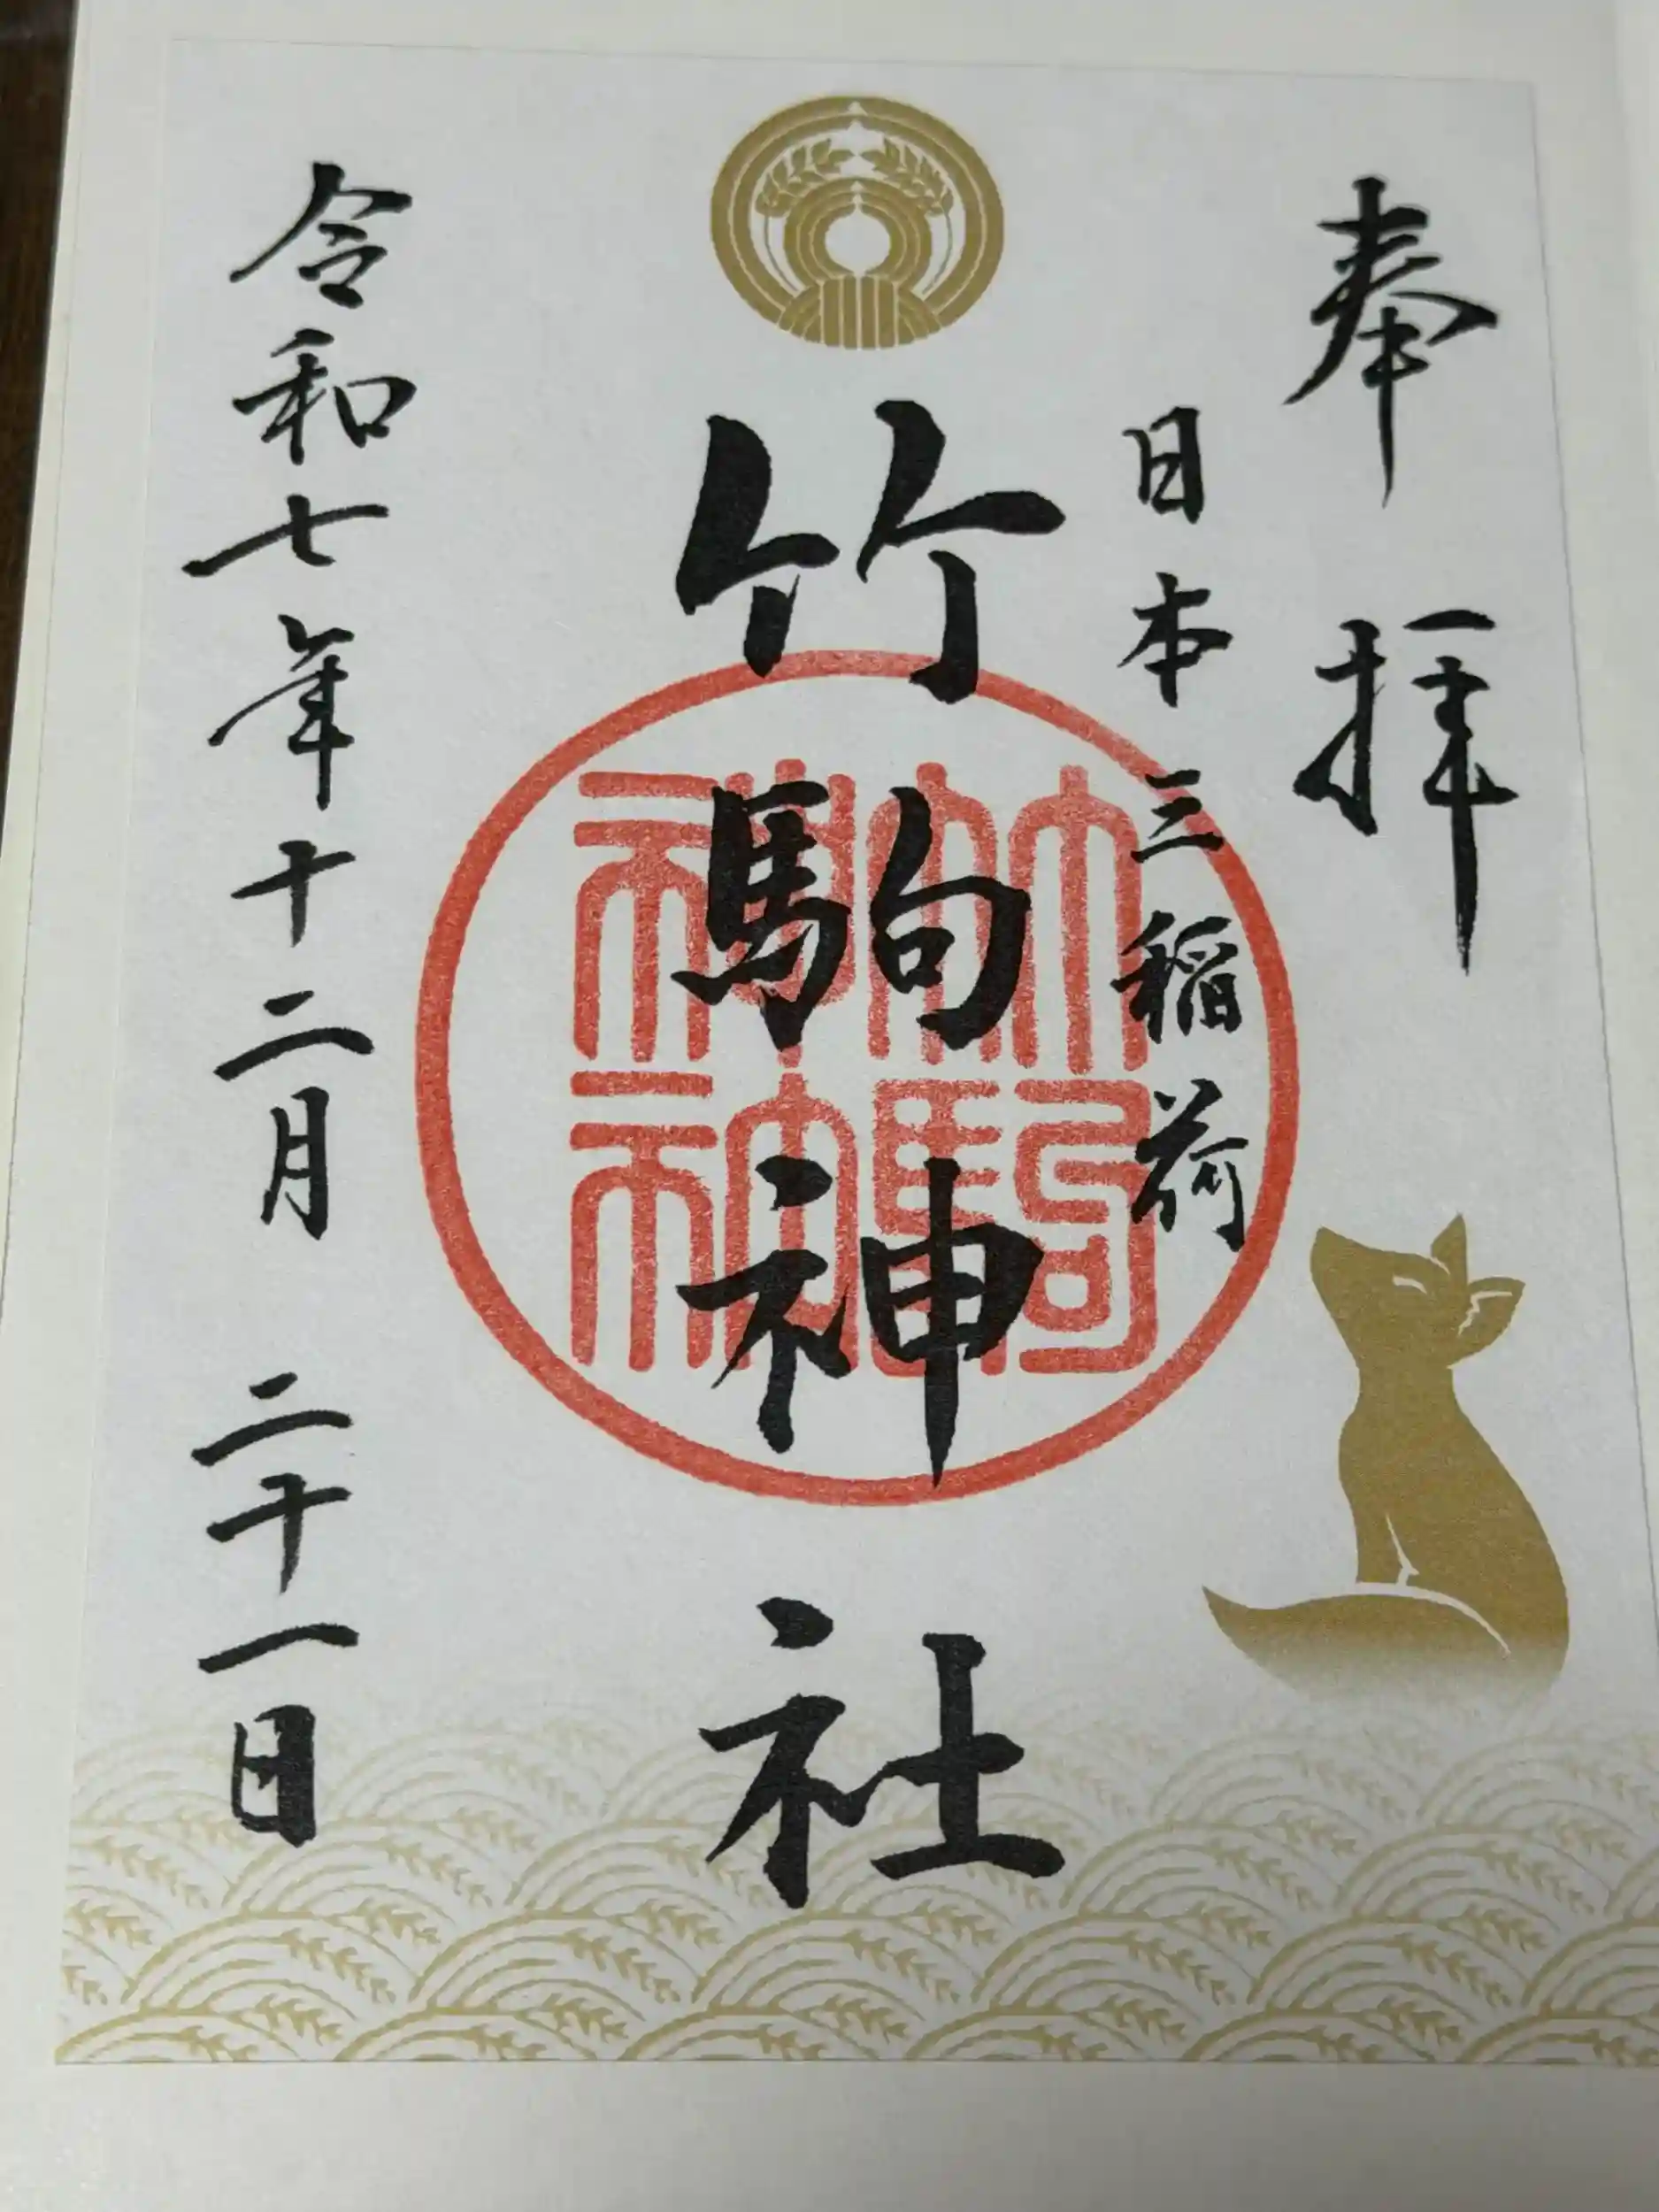 奉拝
日本三稲荷
竹駒神社
竹駒神社
令和七年十二月二十一日